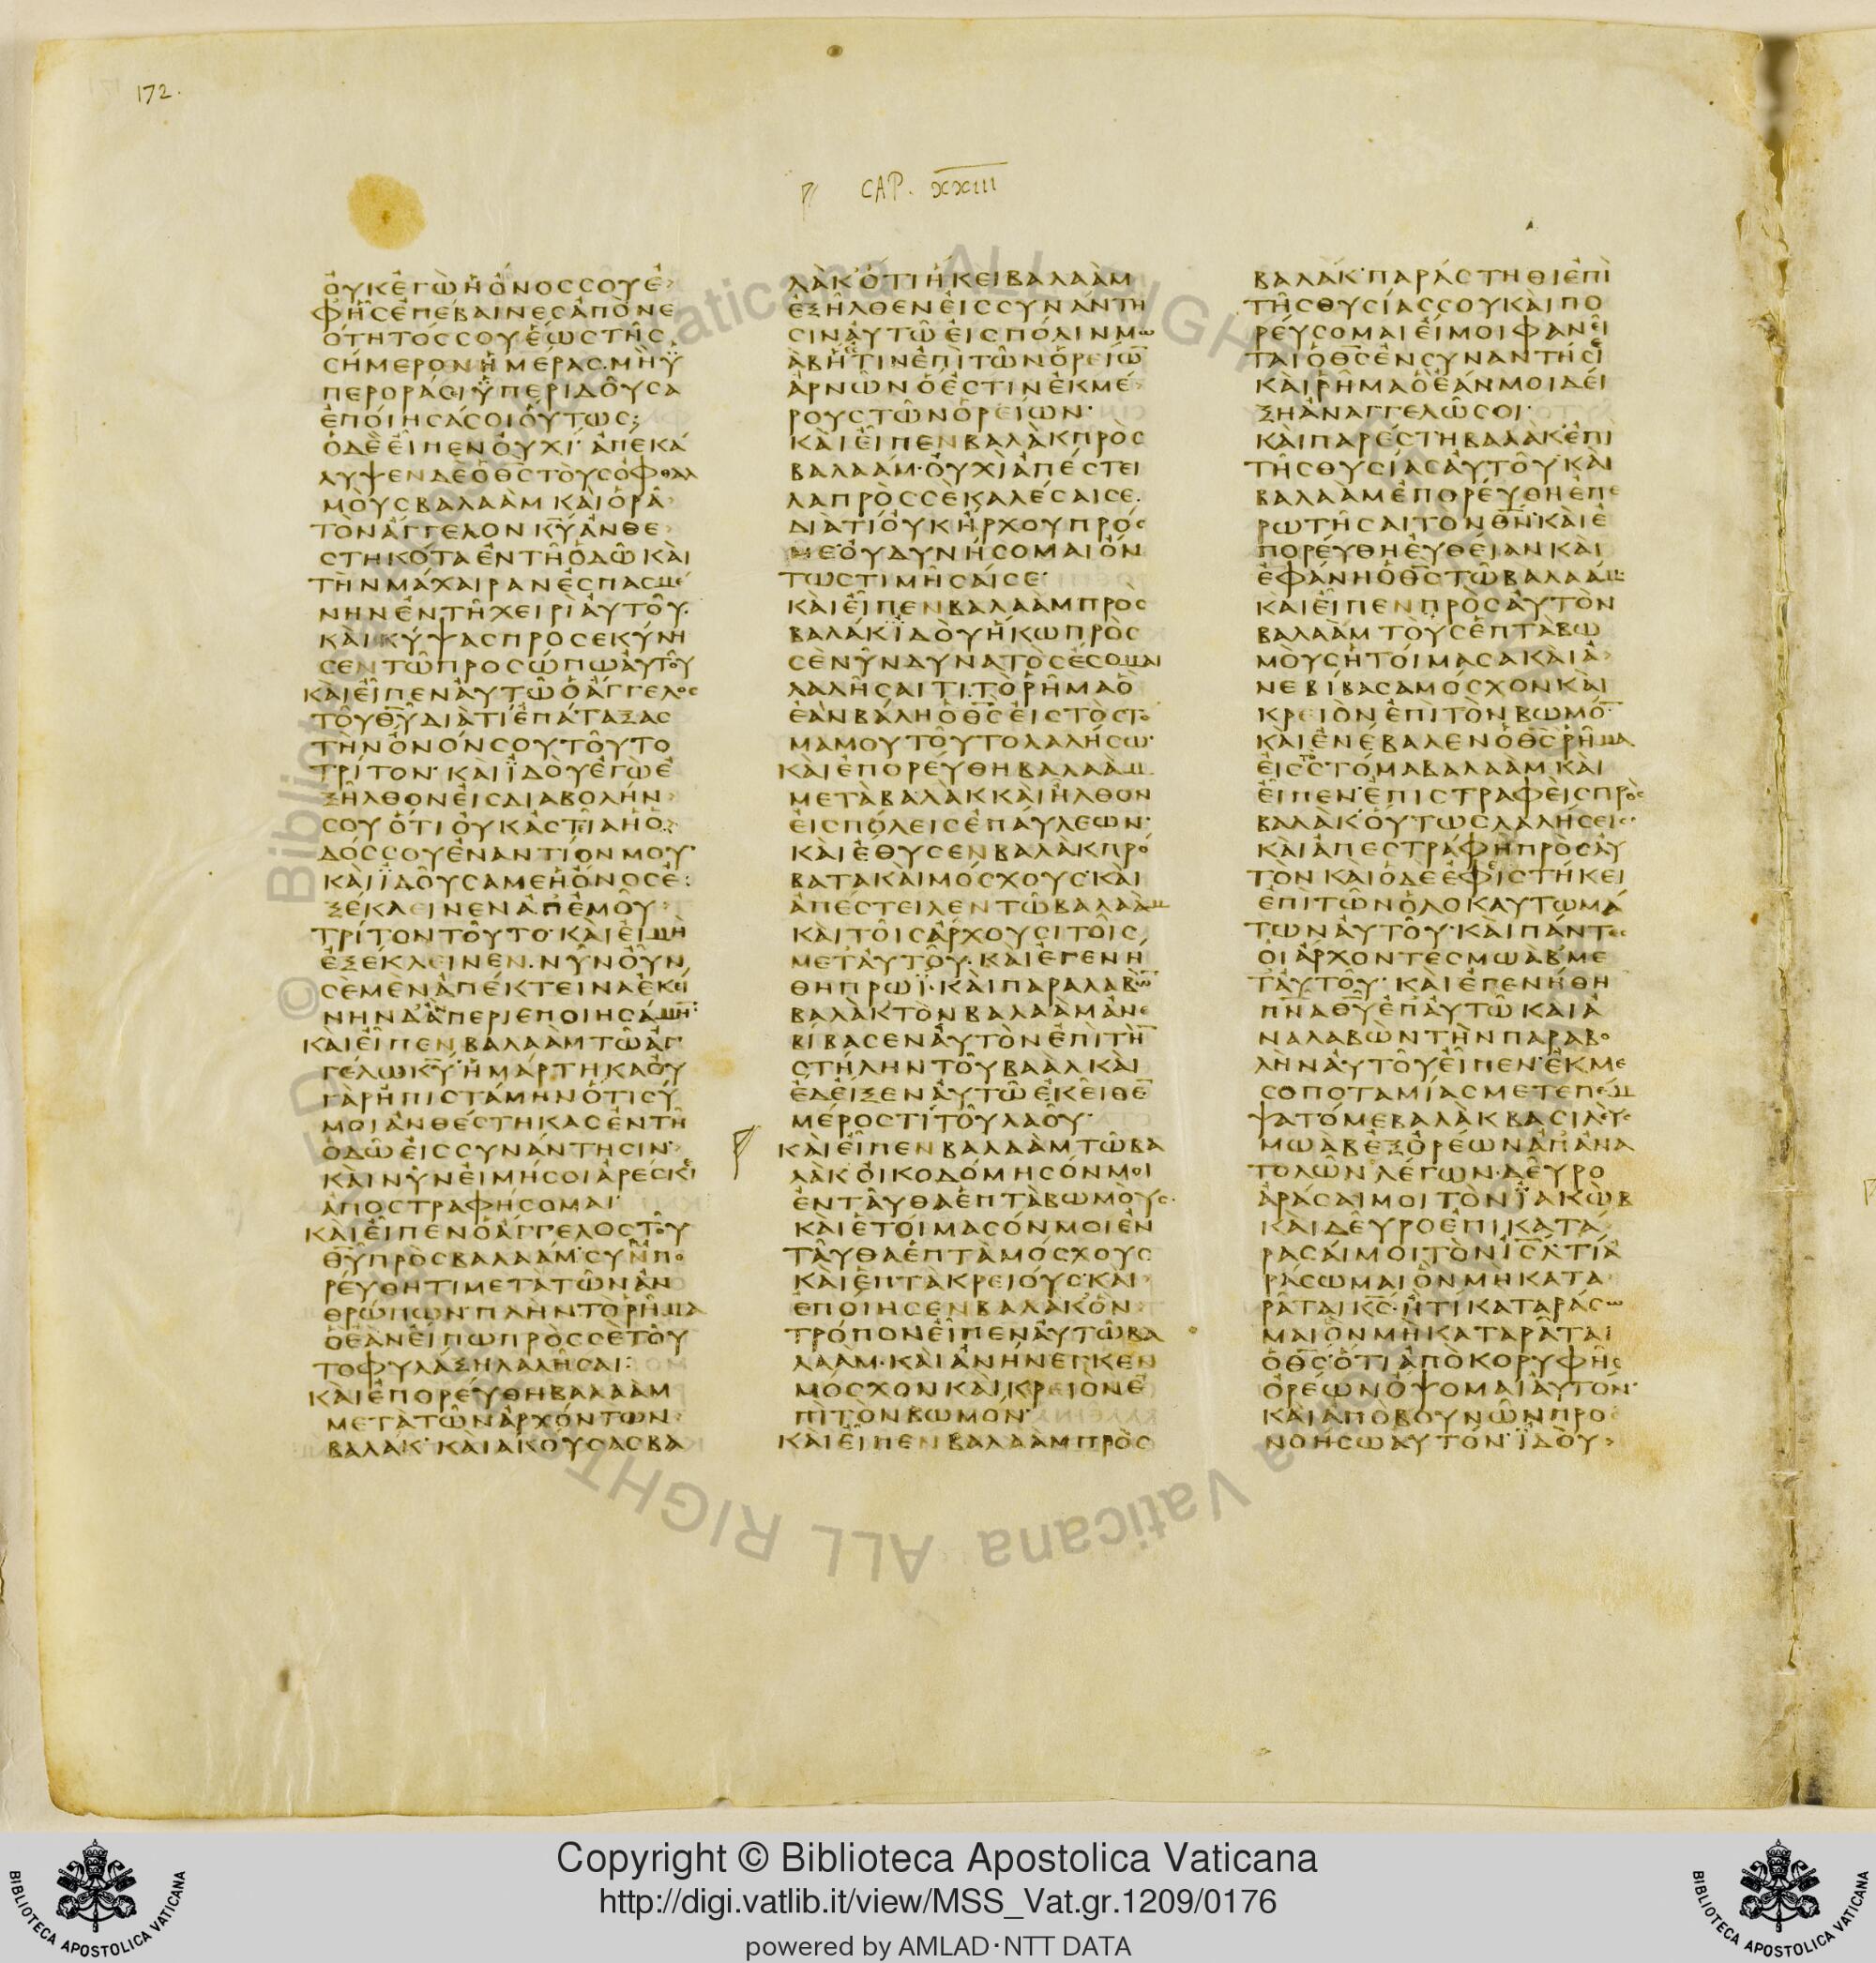 172.
CAP. XXIII
ΟΥΚΕΓΩΗΟΝΟΣΣΟΥΕ
ΦΗΣΕΠΕΒΑΙΝΕΣΑΠΟΝΕ
ΟΤΗΤΟΣΣΟΥΕΩΣΤΗΣ
ΣΗΜΕΡΟΝΗΜΕΡΑΣ·ΜΗΥ
ΠΕΡΟΡΑΣΙΫΠΕΡΙΔΟΥΣΑ
ΕΠΟΙΗΣΑΣΟΙΟΥΤΩΣ;
ΟΔΕΕΙΠΕΝΟΥΧΙ·ΑΠΕΚΑ
ΛΥΨΕΝΔΕΟΘΣΤΟΥΣΟΦΘΑΛ
ΜΟΥΣΒΑΛΑΑΜΚΑΙΟΡΑ
ΤΟΝΑΓΓΕΛΟΝΚΥΑΝΘΕ
ΣΤΗΚΟΤΑΕΝΤΗΟΔΩΚΑΙ
ΤΗΝΜΑΧΑΙΡΑΝΕΣΠΑΣΜΕ
ΝΗΝΕΝΤΗΧΕΙΡΙΑΥΤΟΥ·
ΚΑΙΚΥΨΑΣΠΡΟΣΕΚΥΝΗ
ΣΕΝΤΩΠΡΟΣΩΠΩΑΥΤΟΥ
ΚΑΙΕΙΠΕΝΑΥΤΩΟΑΓΓΕΛΟΣ
ΤΟΥΘΥΔΙΑΤΙΕΠΑΤΑΞΑΣ
ΤΗΝΟΝΟΝΣΟΥΤΟΥΤΟ
ΤΡΙΤΟΝ·ΚΑΙΪΔΟΥΕΓΩΕ
ΞΗΛΘΟΝΕΙΣΔΙΑΒΟΛΗΝ
ΣΟΥΟΤΙΟΥΚΑΣΤΙΑΗΟ
ΔΟΣΣΟΥΕΝΑΝΤΙΟΝΜΟΥ·
ΚΑΙΪΔΟΥΣΑΜΕΗΟΝΟΣΕ
ΞΕΚΛΕΙΝΕΝΑΠΕΜΟΥ
ΤΡΙΤΟΝΤΟΥΤΟ·ΚΑΙΕΙΜΗ
ΕΞΕΚΛΕΙΝΕΝ·ΝΥΝΟΥΝ
ΣΕΜΕΝΑΠΕΚΤΕΙΝΑΕΚΕΙ
ΝΗΝΔΑΠΕΡΙΕΠΟΙΗΣΑΜΗ
ΚΑΙΕΙΠΕΝΒΑΛΑΑΜΤΩΑΓ
ΓΕΛΩΚΥ·ΗΜΑΡΤΗΚΑΟΥ
ΓΑΡΗΠΙΣΤΑΜΗΝΟΤΙΣΥ
ΜΟΙΑΝΘΕΣΤΗΚΑΣΕΝΤΗ
ΟΔΩΕΙΣΣΥΝΑΝΤΗΣΙΝ·
ΚΑΙΝΥΝΕΙΜΗΣΟΙΑΡΕΣΚΕΙ
ΑΠΟΣΤΡΑΦΗΣΟΜΑΙ·
ΚΑΙΕΙΠΕΝΟΑΓΓΕΛΟΣΤΟΥ
ΘΥΠΡΟΣΒΑΛΑΑΜ·ΣΥΝΠΟ
ΡΕΥΘΗΤΙΜΕΤΑΤΩΝΑΝ
ΘΡΩΠΩΝ·ΠΛΗΝΤΟΡΗΜΑ
ΟΕΑΝΕΙΠΩΠΡΟΣΣΕΤΟΥ
ΤΟΦΥΛΑΞΗΛΑΛΗΣΑΙ:
ΚΑΙΕΠΟΡΕΥΘΗΒΑΛΑΑΜ
ΜΕΤΑΤΩΝΑΡΧΟΝΤΩΝ
ΒΑΛΑΚ·ΚΑΙΑΚΟΥΣΑΣΒΑ
ΛΑΚΟΤΙΗΚΕΙΒΑΛΑΑΜ
ΕΞΗΛΘΕΝΕΙΣΣΥΝΑΝΤΗ
ΣΙΝΑΥΤΩΕΙΣΠΟΛΙΝΜΩ
ΑΒΗΤΙΝΕΠΙΤΩΝΟΡΕΙΩ
ΑΡΝΩΝΟΕΣΤΙΝΕΚΜΕ
ΡΟΥΣΤΩΝΟΡΕΙΩΝ·
ΚΑΙΕΙΠΕΝΒΑΛΑΚΠΡΟΣ
ΒΑΛΑΑΜ·ΟΥΧΙΑΠΕΣΤΕΙ
ΛΑΠΡΟΣΣΕΚΑΛΕΣΑΙΣΕ·
ΔΙΑΤΙΟΥΚΗΡΧΟΥΠΡΟΣ
ΜΕ·ΟΥΔΥΝΗΣΟΜΑΙΟΝ
ΤΩΣΤΙΜΗΣΑΙΣΕ·
ΚΑΙΕΙΠΕΝΒΑΛΑΑΜΠΡΟΣ
ΒΑΛΑΚΪΔΟΥΗΚΩΠΡΟΣ
ΣΕΝΥΝΔΥΝΑΤΟΣΕΣΟΜΑΙ
ΛΑΛΗΣΑΙΤΙ·ΤΟΡΗΜΑΟ
ΕΑΝΒΑΛΗΟΘΣΕΙΣΤΟΣΤΟ
ΜΑΜΟΥΤΟΥΤΟΛΑΛΗΣΩ·
ΚΑΙΕΠΟΡΕΥΘΗΒΑΛΑΑΜ
ΜΕΤΑΒΑΛΑΚΚΑΙΗΛΘΟΝ
ΕΙΣΠΟΛΕΙΣΕΠΑΥΛΕΩΝ·
ΚΑΙΕΘΥΣΕΝΒΑΛΑΚΠΡΟ
ΒΑΤΑΚΑΙΜΟΣΧΟΥΣ·ΚΑΙ
ΑΠΕΣΤΕΙΛΕΝΤΩΒΑΛΑΑΜ
ΚΑΙΤΟΙΣΑΡΧΟΥΣΙΤΟΙΣ
ΜΕΤΑΥΤΟΥ·ΚΑΙΕΓΕΝΗ
ΘΗΠΡΩΪ·ΚΑΙΠΑΡΑΛΑΒΩ
ΒΑΛΑΚΤΟΝΒΑΛΑΑΜΑΝΕ
ΒΙΒΑΣΕΝΑΥΤΟΝΕΠΙΤΗ
ΣΤΗΛΗΝΤΟΥΒΑΑΛΚΑΙ
ΕΔΕΙΞΕΝΑΥΤΩΕΚΕΙΘΕ
ΜΕΡΟΣΤΙΤΟΥΛΑΟΥ·
ΚΑΙΕΙΠΕΝΒΑΛΑΑΜΤΩΒΑ
ΛΑΚΟΙΚΟΔΟΜΗΣΟΝΜΟΙ
ΕΝΤΑΥΘΑΕΠΤΑΒΩΜΟΥΣ·
ΚΑΙΕΤΟΙΜΑΣΟΝΜΟΙΕΝ
ΤΑΥΘΑΕΠΤΑΜΟΣΧΟΥΣ
ΚΑΙΕΠΤΑΚΡΕΙΟΥΣ·ΚΑΙ
ΕΠΟΙΗΣΕΝΒΑΛΑΚΟΝ
ΤΡΟΠΟΝΕΙΠΕΝΑΥΤΩΒΑ
ΛΑΑΜ·ΚΑΙΑΝΗΝΕΓΚΕΝ
ΜΟΣΧΟΝΚΑΙΚΡΕΙΟΝΕ
ΠΙΤΟΝΒΩΜΟΝ·
ΚΑΙΕΙΠΕΝΒΑΛΑΑΜΠΡΟΣ
ΒΑΛΑΚ·ΠΑΡΑΣΤΗΘΙΕΠΙ
ΤΗΣΘΥΣΙΑΣΣΟΥΚΑΙΠΟ
ΡΕΥΣΟΜΑΙΕΙΜΟΙΦΑΝΕΙ
ΤΑΙΟΘΣΕΝΣΥΝΑΝΤΗΣΕΙ
ΚΑΙΡΗΜΑΟΕΑΝΜΟΙΔΕΙ
ΞΗΑΝΑΓΓΕΛΩΣΟΙ·
ΚΑΙΠΑΡΕΣΤΗΒΑΛΑΚΕΠΙ
ΤΗΣΘΥΣΙΑΣΑΥΤΟΥ·ΚΑΙ
ΒΑΛΑΑΜΕΠΟΡΕΥΘΗΕΠΕ
ΡΩΤΗΣΑΙΤΟΝΘΝ·ΚΑΙΕ
ΠΟΡΕΥΘΗΕΥΘΕΙΑΝΚΑΙ
ΕΦΑΝΗΟΘΣΤΩΒΑΛΑΑΜ·
ΚΑΙΕΙΠΕΝΠΡΟΣΑΥΤΟΝ
ΒΑΛΑΑΜΤΟΥΣΕΠΤΑΒΩ
ΜΟΥΣΗΤΟΙΜΑΣΑΚΑΙΑ
ΝΕΒΙΒΑΣΑΜΟΣΧΟΝΚΑΙ
ΚΡΕΙΟΝΕΠΙΤΟΝΒΩΜΟ
ΚΑΙΕΝΕΒΑΛΕΝΟΘΣΡΗΜΑ
ΕΙΣΣΤΟΜΑΒΑΛΑΑΜΚΑΙ
ΕΙΠΕΝ·ΕΠΙΣΤΡΑΦΕΙΣΠΡΟΣ
ΒΑΛΑΚΟΥΤΩΣΛΑΛΗΣΕΙΣ·
ΚΑΙΑΠΕΣΤΡΑΦΗΠΡΟΣΑΥ
ΤΟΝΚΑΙΟΔΕΕΦΙΣΤΗΚΕΙ
ΕΠΙΤΩΝΟΛΟΚΑΥΤΩΜΑ
ΤΩΝΑΥΤΟΥ·ΚΑΙΠΑΝΤΕΣ
ΟΙΑΡΧΟΝΤΕΣΜΩΑΒΜΕ
ΤΑΥΤΟΥ·ΚΑΙΕΓΕΝΗΘΗ
ΠΝΑΘΥΕΠΑΥΤΩΚΑΙΑ
ΝΑΛΑΒΩΝΤΗΝΠΑΡΑΒΟ
ΛΗΝΑΥΤΟΥΕΙΠΕΝ·ΕΚΜΕ
ΣΟΠΟΤΑΜΙΑΣΜΕΤΕΠΕΜ
ΨΑΤΟΜΕΒΑΛΑΚΒΑΣΙΛΕΥΣ
ΜΩΑΒΕΞΟΡΕΩΝΑΠΑΝΑ
ΤΟΛΩΝΛΕΓΩΝ·ΔΕΥΡΟ
ΑΡΑΣΑΙΜΟΙΤΟΝΪΑΚΩΒ
ΚΑΙΔΕΥΡΟΕΠΙΚΑΤΑ
ΡΑΣΑΙΜΟΙΤΟΝΙΣΛΤΙΑ
ΡΑΣΩΜΑΙΟΝΜΗΚΑΤΑ
ΡΑΤΑΙΚΣ·ΗΤΙΚΑΤΑΡΑΣΩ
ΜΑΙΟΝΜΗΚΑΤΑΡΑΤΑΙ
ΟΘΣ·ΟΤΙΑΠΟΚΟΡΥΦΗΣ
ΟΡΕΩΝΟΨΟΜΑΙΑΥΤΟΝ·
ΚΑΙΑΠΟΒΟΥΝΩΝΠΡΟ
ΝΟΗΣΩΑΥΤΟΝ·ΪΔΟΥ
© Biblioteca Apostolica Vaticana ALL RIGHTS
Copyright © Biblioteca Apostolica Vaticana
http://digi.vatlib.it/view/MSS_Vat.gr.1209/0176
powered by AMLAD·NTT DATA
BIBLIOTECA APOSTOLICA VATICANA
BIBLIOTECA APOSTOLICA VATICANA